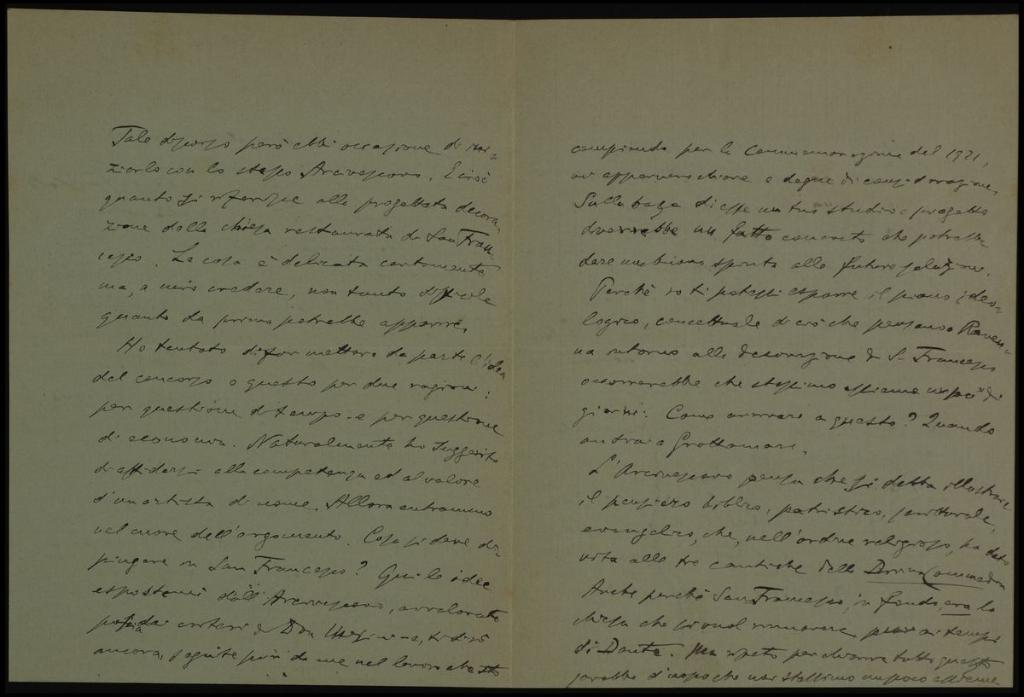 Tale discorso però ebbi occasione di ini-
ziarlo con lo stesso Arcivescovo. E ciò
quanto si riferisce alla progettata decora-
zione della chiesa restaurata di San Fran-
cesco. La cosa è delicata certamente,
ma, a mio credere, non tanto difficile
quanto da prima potrebbe apparire.
Ho tentato di far mettere da parte l'idea
del concorso e questo per due ragioni:
per questione di tempo e per questione
di economia. Naturalmente ho suggerito
di affidarsi alla competenza ed al valore
d'un artista di nome. Allora entrammo
nel cuore dell'argomento. Cosa si deve di-
pingere in San Francesco? Qui le idee
espostemi dall'Arcivescovo, avvalorate
poscia dai criteri di Don, ti dirò
ancora, seguite poi da me nel lavoro che sto
compiendo per la commemorazione del 1921,
mi apparvero chiare e degne di considerazione.
Sulla base di esse un tuo studio e progetto
diverrebbe un fatto concreto che potrebbe
dare una buona spinta alla futura soluzione.
Perchè io ti potessi esporre il piano ideo-
logico, concettuale di ciò che pensano a Raven-
na intorno alla decorazione di S. Francesco
occorrerebbe che stessimo assieme un po' di
giorni. Come arrivare a questo? Quando
andrai a Grottamare.
L'Arcivescovo pensa che si debba illustrare
il pensiero biblico, patristico, scritturale,
evangelico, che, nell'ordine religioso, ha dato
vita alle tre cantiche della Divina Commedia
Anche perchè San Francesco, in fondo, era la
chiesa che si vuol rinnovare ai tempi
di Dante. Ma ripeto per chiarire tutto questo
sarebbe d'uopo che noi stessimo un poco assieme